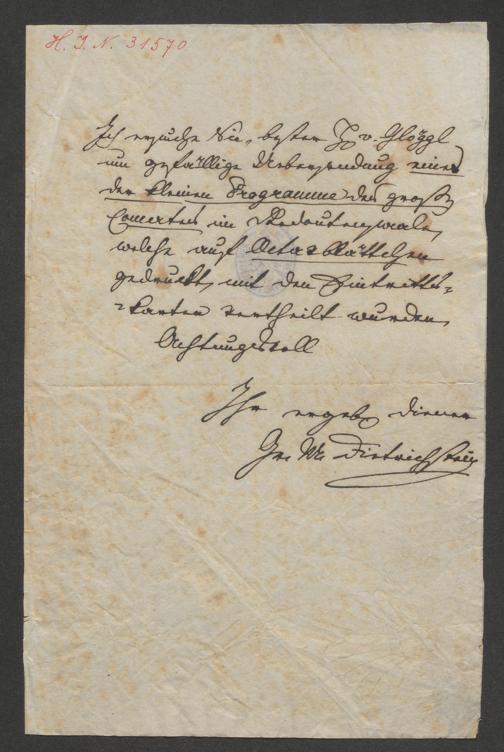 H. I. N. 31570
Ich ersuche Sie, bester H v. Glöggl
um gefällige Uebersendung eines
der kleinen Programme des großen
Concertes im Redoutensaale,
welche auf Octavblättchen
gedruckt, mit den Eintritts-
-karten vertheilt wurden,
Achtungsvoll
Ihr ergeb. Diener
Gr. M. Dietrichstein